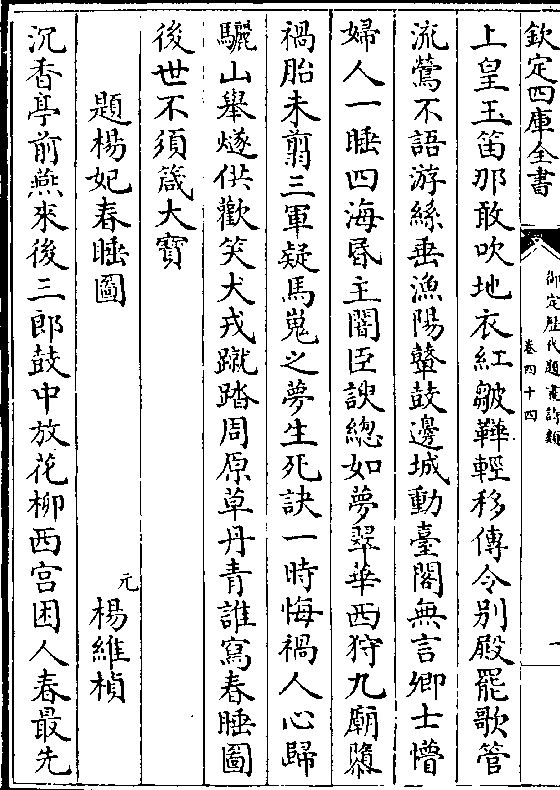 欽定四庫全書
御定歷代題畫詩類
卷四十四
上皇玉笛那敢吹地衣紅皺鞾輕移傳令别殿罷歌管
流鶯不語游絲垂漁陽鼙鼓邊城動臺閣無言卿士懵
婦人一睡四海昏主闇臣諛總如夢翠華西狩九廟隳
禍胎未翦三軍疑馬嵬之夢生死訣一時悔禍人心歸
驪山舉燧供歡笑犬戎蹴踏周原草丹青誰寫春睡圖
後世不須箴大寶
題楊妃春睡圖
元 楊維楨
沉香亭前燕來後三郎鼓中放花柳西宫困人春最先